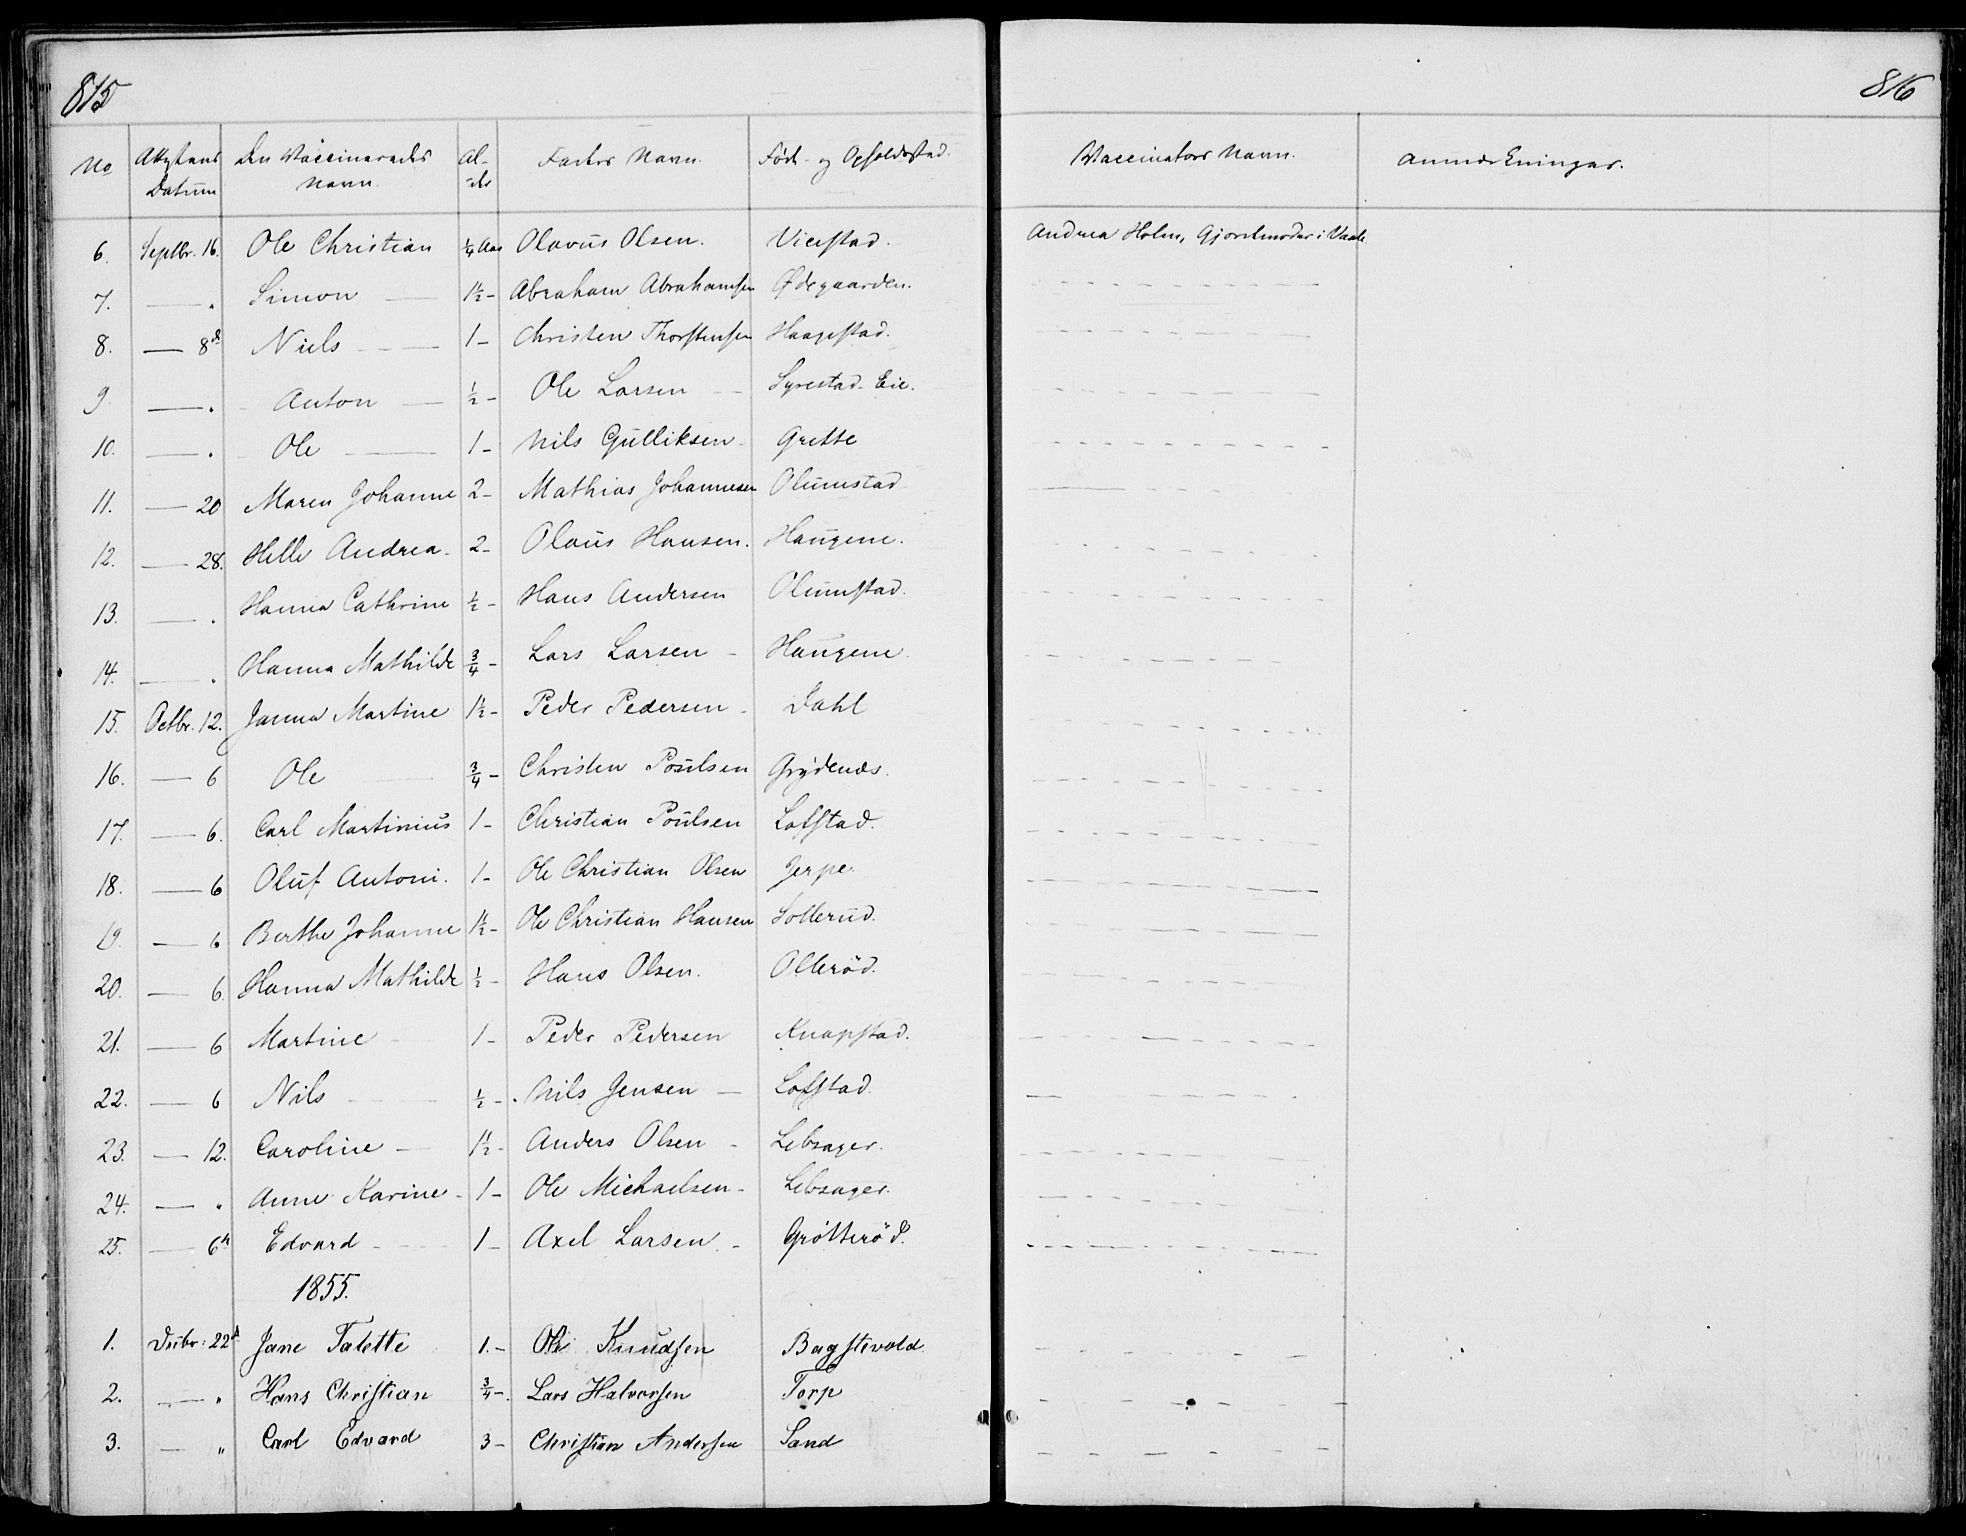 815
816
No Attestens Datum Den Vaccineredes Navn. Al-der Faders Navn. Føde- og Opholdsstad. Vaccinators Navn. Anmærkninger.
6. Septbr. 16. Ole Christian ¼ Aar Olavus Olsen. Vivestad. Andrea Holm, Gjordmoder i Vaale
7. — " Simon — 1½ - Abraham Abrahamsen Ødegaarden.
8. — 8d Niels — 1 - Christen Thorstensen Haagestad.
9. — " Anton — ½ - Ole Larsen - Syrestad-Eie.
10. — " Ole — 1 - Nils Gulliksen - Grette
11. — 20 Maren Johanne 2 - Mathias Johannesen Olumstad
12. — 28. Helle Andrea - 2 - Olaus Hansen. Haugene.
13. — " Hanna Cathrine ½ - Hans Andersen Olumstad.
14. — " Hanna Mathilde ¾ - Lars Larsen - Haugene.
15. Octbr. 12. Janna Martine 1½ - Peder Pedersen - Dahl
16. — 6 Ole — ¾ - Christen Poulsen Grydenæs.
17. — 6. Carl Martinius 1 - Christian Poulsen Lofstad.
18. — 6 Oluf Antoni. 1 - Ole Christian Olsen Jerpe.
19. — 6 Berthe Johanne 1½ - Ole Christian Hansen Solterud.
20. — 6. Hanna Mathilde ½ - Hans Olsen. Ollerød.
21. — 6 Martine - 1 - Peder Pedersen Knapstad.
22. — 6 Nils — ½ - Nils Jensen — Lofstad.
23. — 12. Caroline — 1½ - Anders Olsen - Lebsager.
24. — " Anne Karine - 1 - Ole Michaelsen - Lebsager.
25. — 6te Edvard - 1 - Axel Larsen - Grøtterød.
1855.
1. Decbr: 22d Jane Talette 1. - Ole Knudsen Bagstevold
2. — " Hans Christian ¾ -. Lars Halvorsen Torp
3. — " Carl Edvard 3 - Christian Andersen Sand